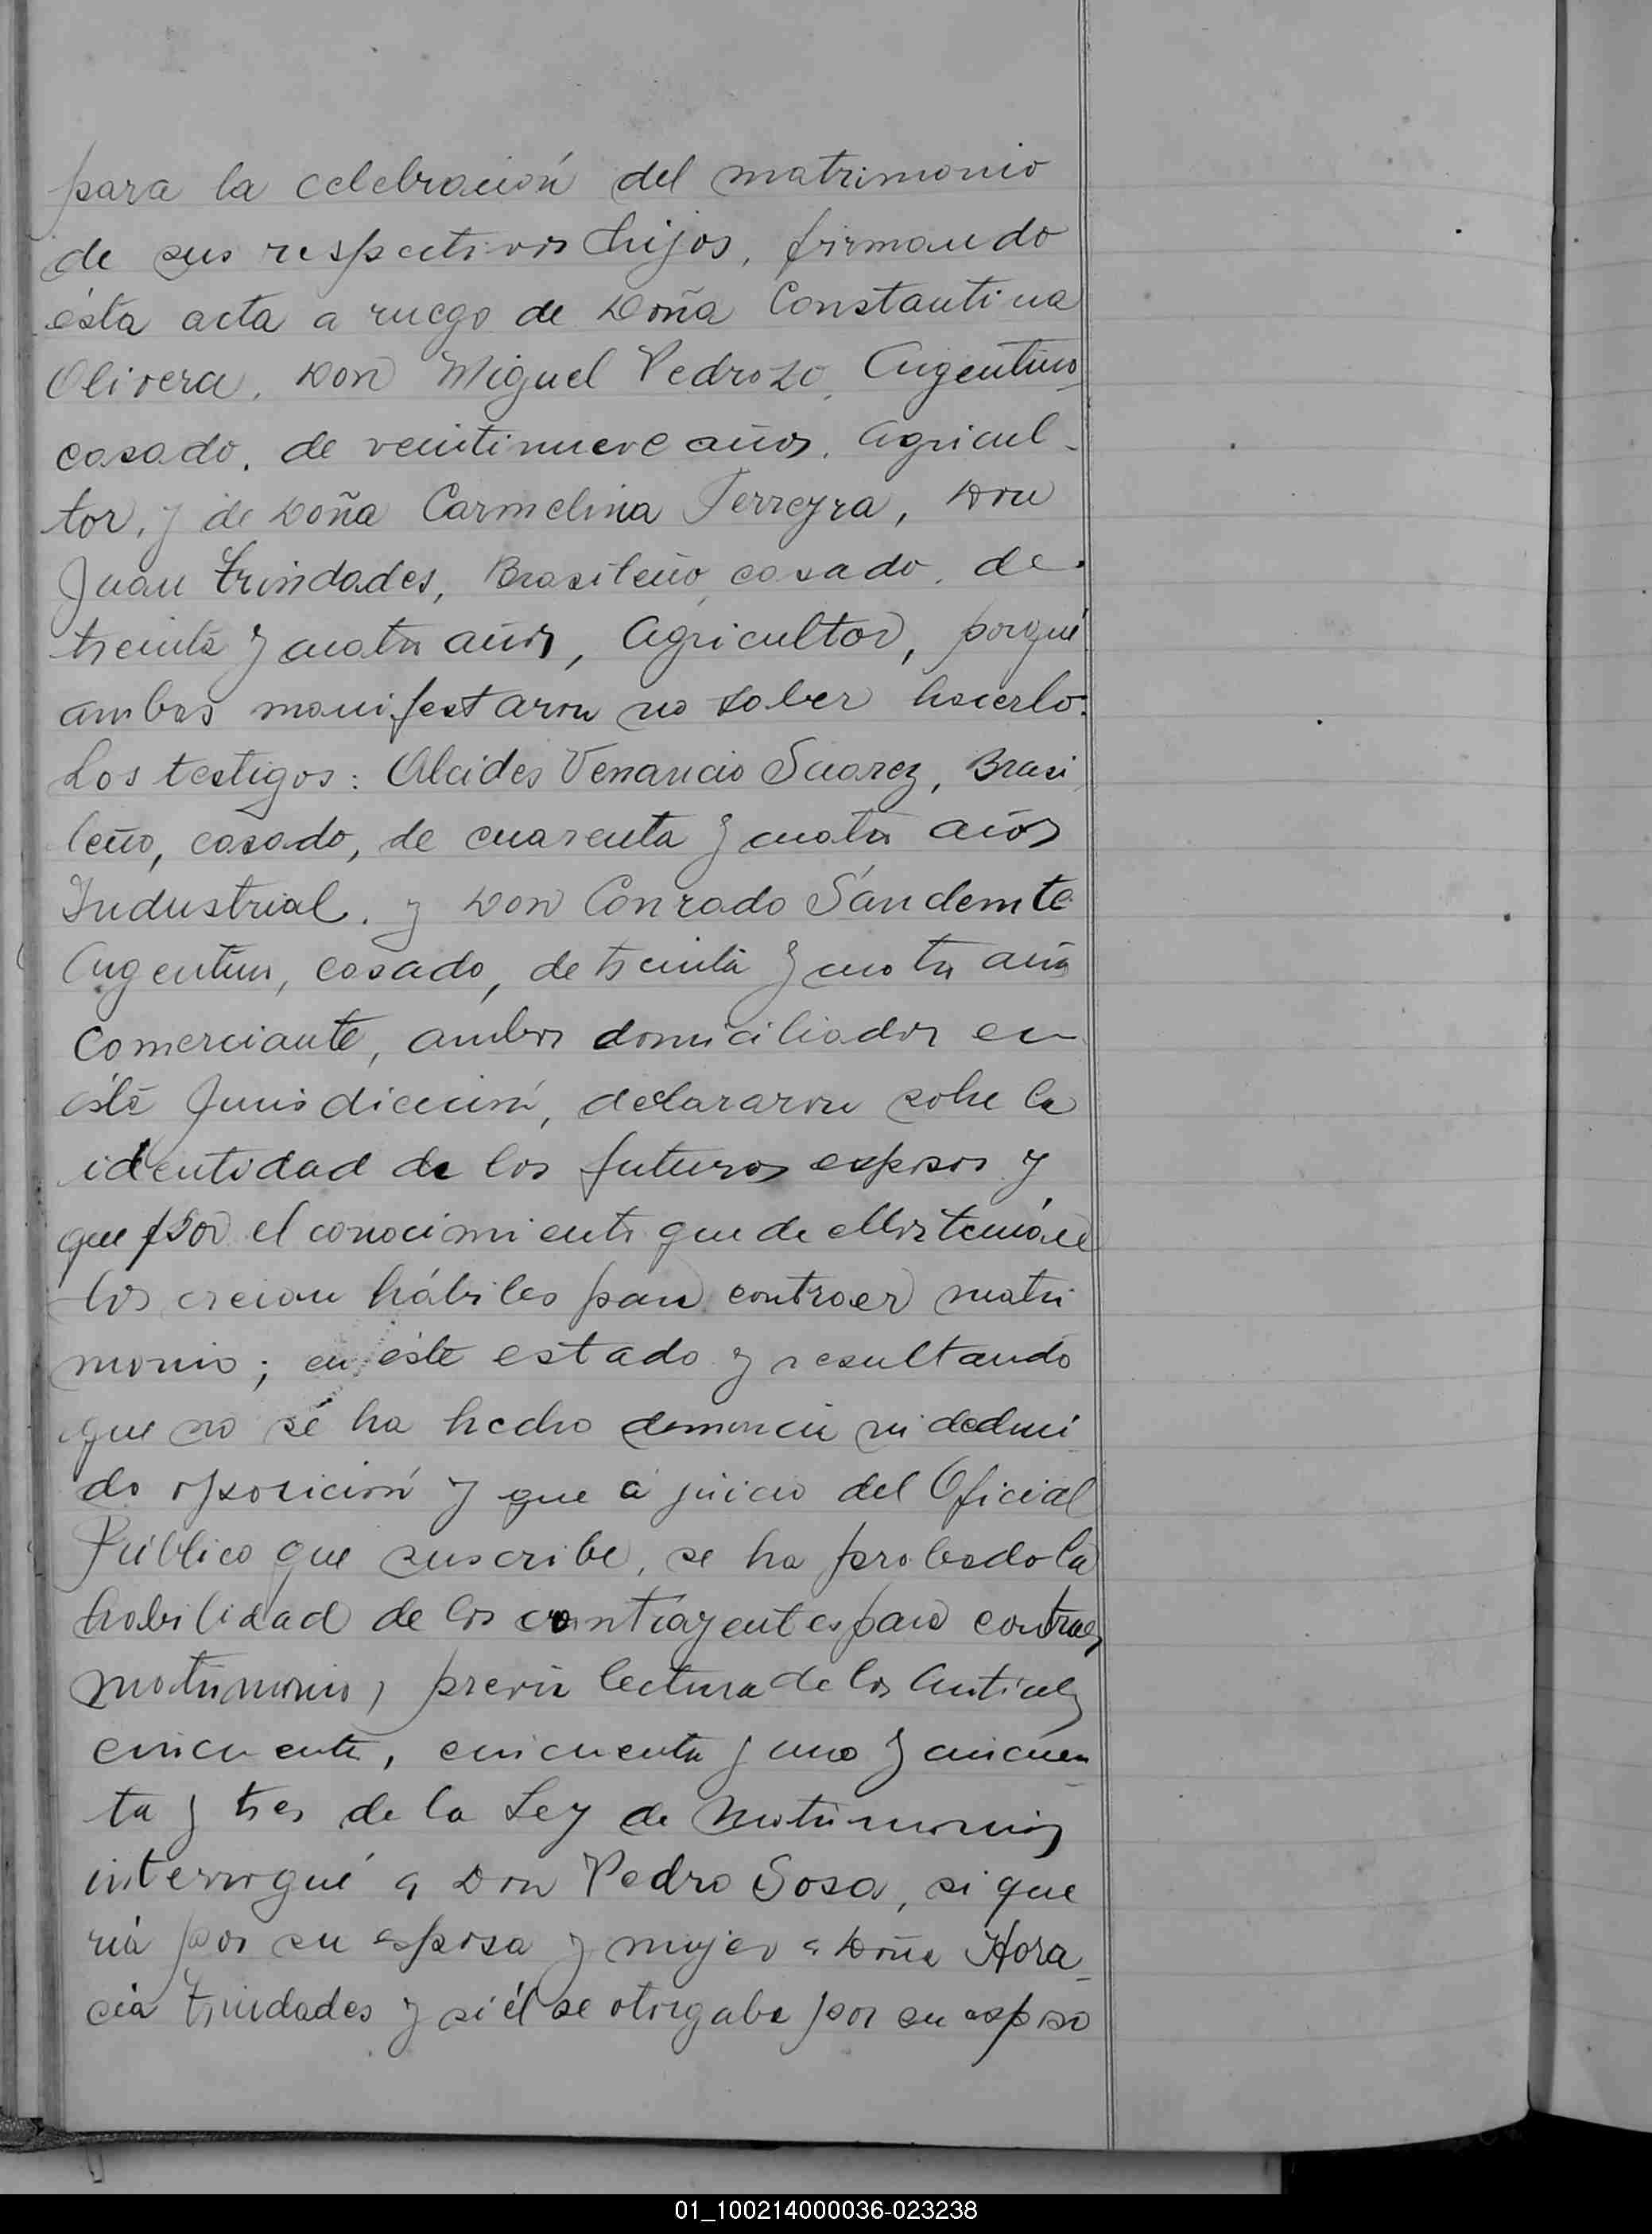 para la celebración del matrimonio
de sus respectivos hijos, firmando
ésta acta a ruego de Doña Constantina
Olivera, Don Miguel Pedrozo, Argentino
casado, de veintinueve años, Agricul-
tor, y de Doña Carmelina Ferreyra, Don
Juan Trindades, Brasileño, casado, de
treinta y cuatro años, Agricultor, porqué
ambas manifestaron no saber hacerlo.
Los testigos: Alcides Venancio Suarez, Brasi
leño, casado, de cuarenta y cuatro años
Industrial, y Don Conrado
Argentino, casado, de treinta y cuatro años
Comerciante, ambos domiciliados en
ésta Jurisdicción, declararon sobre la
identidad de los futuros esposos y
que por el conocimiento que de ellos tenían
los creian hábiles para contraer matri
monio; en éste estado y resultando
que no sé ha hecho denuncia ni deduci
do oposición y que á juicio del Oficial
Público que suscribe, se ha probado la
habilidad de los contrayentes para contraer
matrimonio, previa lectura de los Articulos
cincuenta, cincuenta y uno y cincuen
ta y tres de la Ley de Matrimonio
interrogué a Don Pedro Sosa, si que
ria por su esposa y mujer a Doña Hora-
cia Trindades y si él se otorgaba por su esposo
01_100214000036-023238